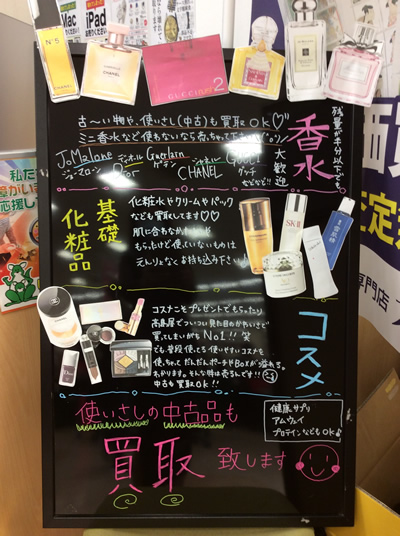 N°5
CHANEL
GUCCI rush 2
古〜い物や、使いさし(中古)も買取OK♡
ミニ香水など使わないなら売っちゃって下さい
香水
残量が半分以下でも
大歓迎
Jo Malone
ジョーマローン
Dior
Guerlain
ゲラン
シャネル
CHANEL
Gucci
グッチ
などなど!!
基礎化粧品
化粧水やクリームやパック
なども買取してます♡♡
肌に合わなかったり
もらったけど使ってないものは
えんりょなくお持ち込み下さい♪
SK-II
雪肌精
コスメ
コスメこそプレゼントでもらったり
高島屋でついつい見た目のかわいさで
買ってしまいがちNo1!! 笑
でも普段使ってる使いやすいコスメを
使っちゃってだんだんポーチやBoxが溢れる。
あります。そんな時は売るんです!!
中古も買取OK!!
使いさしの中古品も
買取 致します
健康サプリ
アムウェイ
プロテインなどもOK♪
私た
応援し
価買
定
専門店
iPad